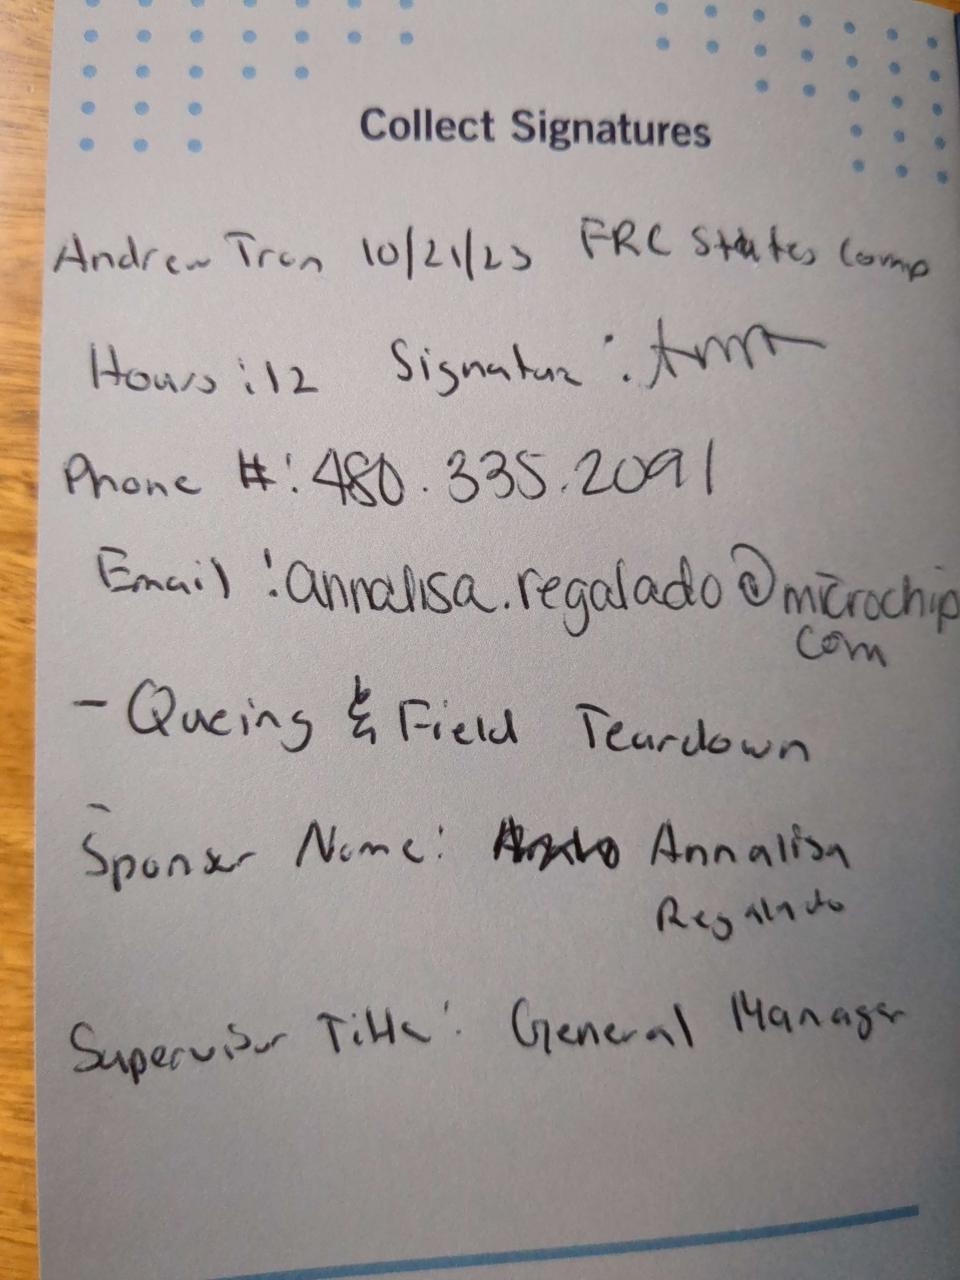 Collect Signatures
Andrew Tran 10/21/23 FRC States Comp
Hours: 12 Signature:
Phone #: 480.335.2091
Email: annalisa.regalado@microchip
com
- Queing & Field Teardown
Sponser Name: Annalisa
Regalado
Supervisor Title: General Manager